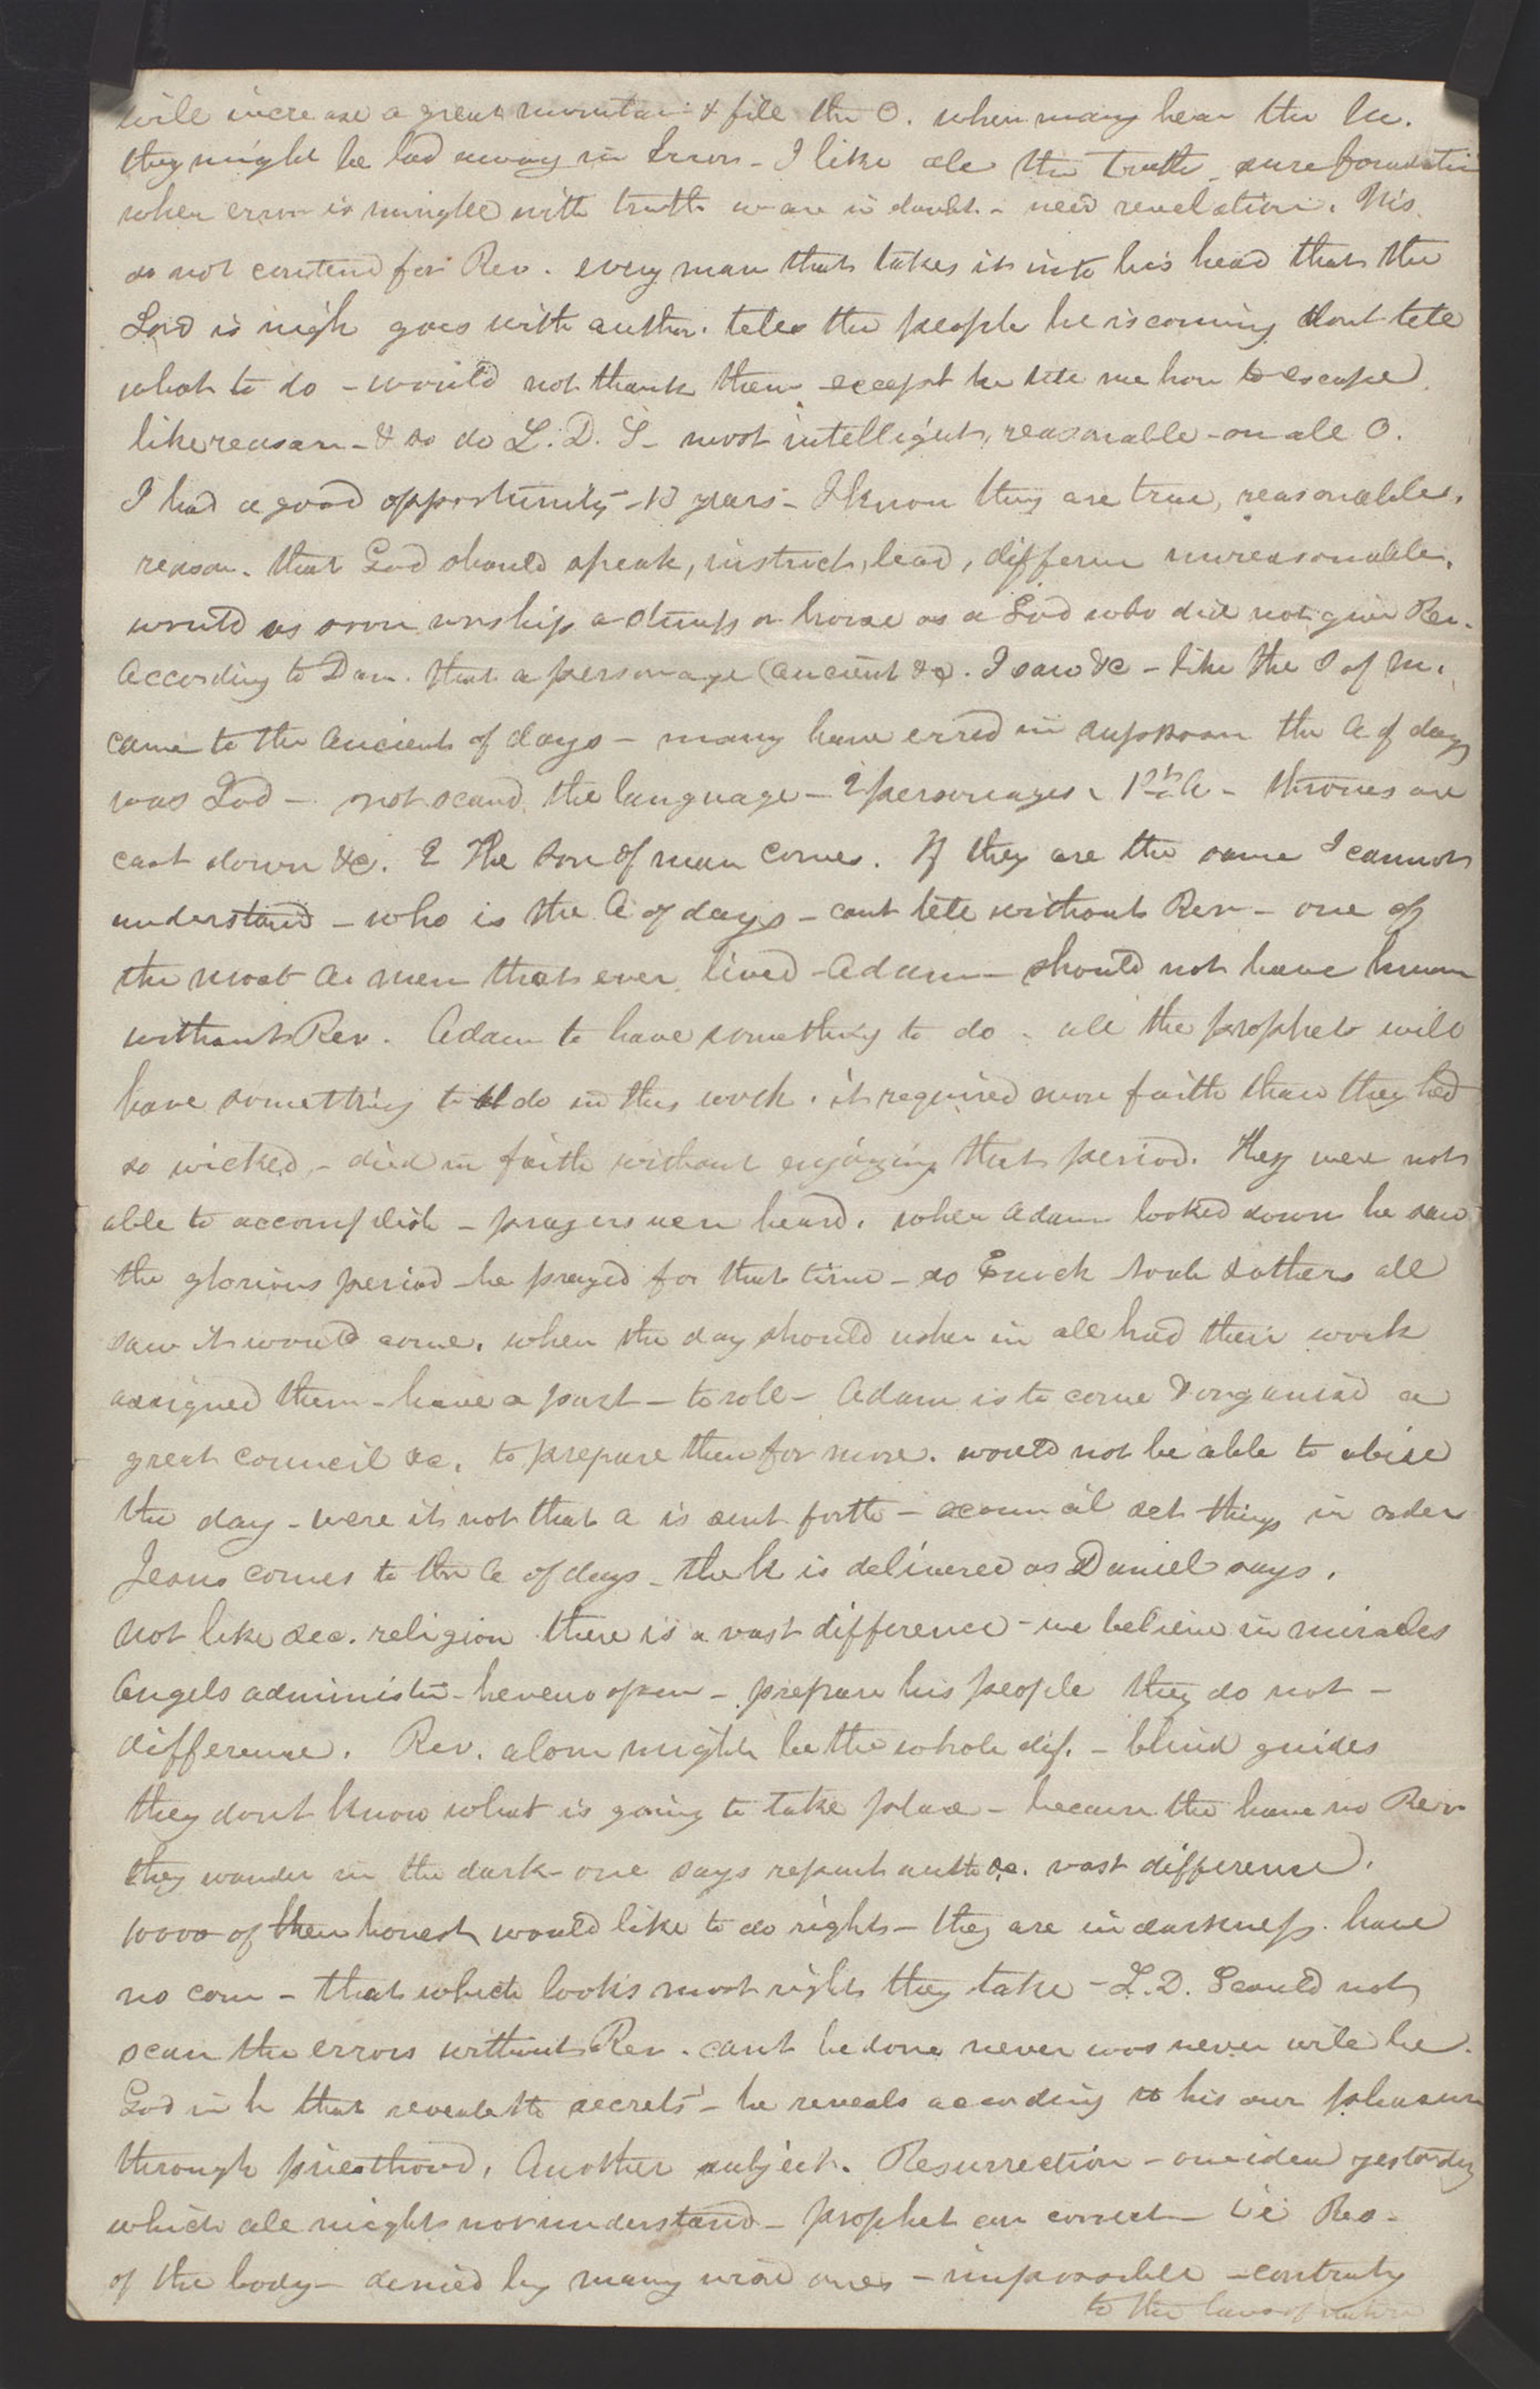 will increase a great mountain & fill the O. when many hear the M.
they might be lad away in Error - I like all the truth sure foundation
when error is mingled with truth we are in doubt - need revelation. this
do not contend for Rev. every man that takes it into his head that the
Lord is nigh goes with author. teles the people he is coming dont tell
what to do - would not thank them except he tell me how to escape
like reason - & so do L. D. S - most intelligent, reasonable - on all O.
I had a good opportunity - 13 years - I know they are true, reasonable,
reason. that God should speak, instruct, lead, differen unreasonable,
would as soon worship a stump or horse as a God who did not give Rev.
According to Dan. that a personage (ancient &c). I saw &c - like the S of M.
came to the Ancients of days - many have erred in supposn the A of days
was God - not scand the language - 2 personages 1st A - thrones are
cast down &c. 2 The Son of man comes. If they are the same I cannot
understand - who is the A of days - cant tell without Rev - one of
the most A. men that ever lived - Adam - should not have known
without Rev. Adam to have something to do - all the prophets will
have something to do in this work. it required more faith than they had
so wicked, - died in faith without enjoying that period. They were not
able to accomplish - prayers were heard. when Adam looked down he saw
the glorious period - he prayed for that time - so Enoch Noah & others all
saw it would come. when the day should usher in all had their work
assigned them - have a part - to roll - Adam is to come & organise a
great council &c. to prepare them for more. would not be able to abide
the day - were it not that A is sent forth - a council set things in order
Jesus comes to the A of days - the K is delivered as Daniel says.
not like sec. religion there is a vast difference - we believe in miracles
Angels administer - hevens open - prepare his people they do not -
difference. Rev. alone might be the whole dif. - blind guides
they dont know what is going to take place - because the have no Rev
they wander in the dark - one says repent anoth &c. vast difference.
1000s of them honest would like to do right - they are in darkness. have
no com - that which looks most right they take - L. D. S could not
scan the errors without Rev. cant be done never was never will be.
God in h that revealeth secrets - he reveals according to his own pleasure
through priesthood. Another subject. Resurrection - one idea yesterday
which all might not understand - prophet can correct - i e Res.
of the body - denied by many wise ones - impossible - contrary
to the laws of nature